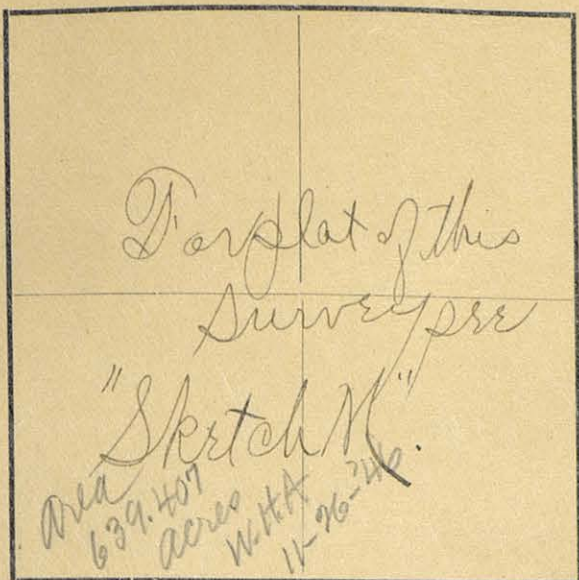 For plat of this
survey see
"Sketch M".
area
639.407
acres
W.H.A
11-26-'46